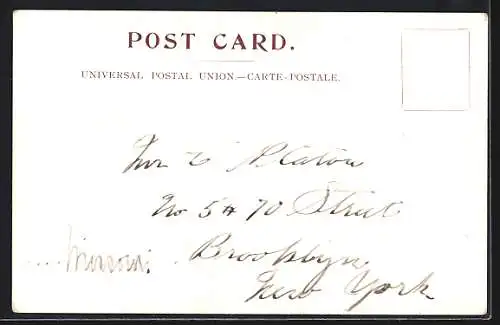 POST CARD.
UNIVERSAL POSTAL UNION.—CARTE-POSTALE.
No 5 # 70 Street
Brooklyn
New York